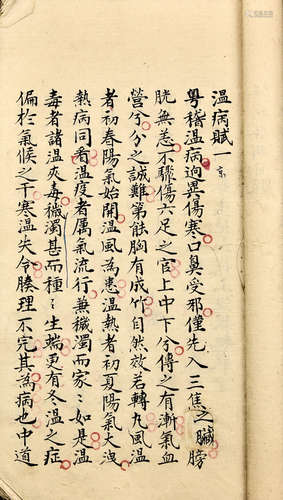 溫病賦一
粵稽溫病逈異傷寒口鼻受邪僅先入三焦之臟膀
胱無恙不驟傷六足之官上中下兮傳之有漸氣血
營兮分之誠難第能胸有成竹自然效若轉丸風溫
者初春陽氣始開溫風為患溫熱者初夏陽氣大洩
熱病同看溫疫者厲氣流行兼穢濁而家〻如是溫
毒者諸溫夾毒穢濁甚而種〻生端更有冬溫之症
偏於氣候之干寒溫失令腠理不完其為病也中道